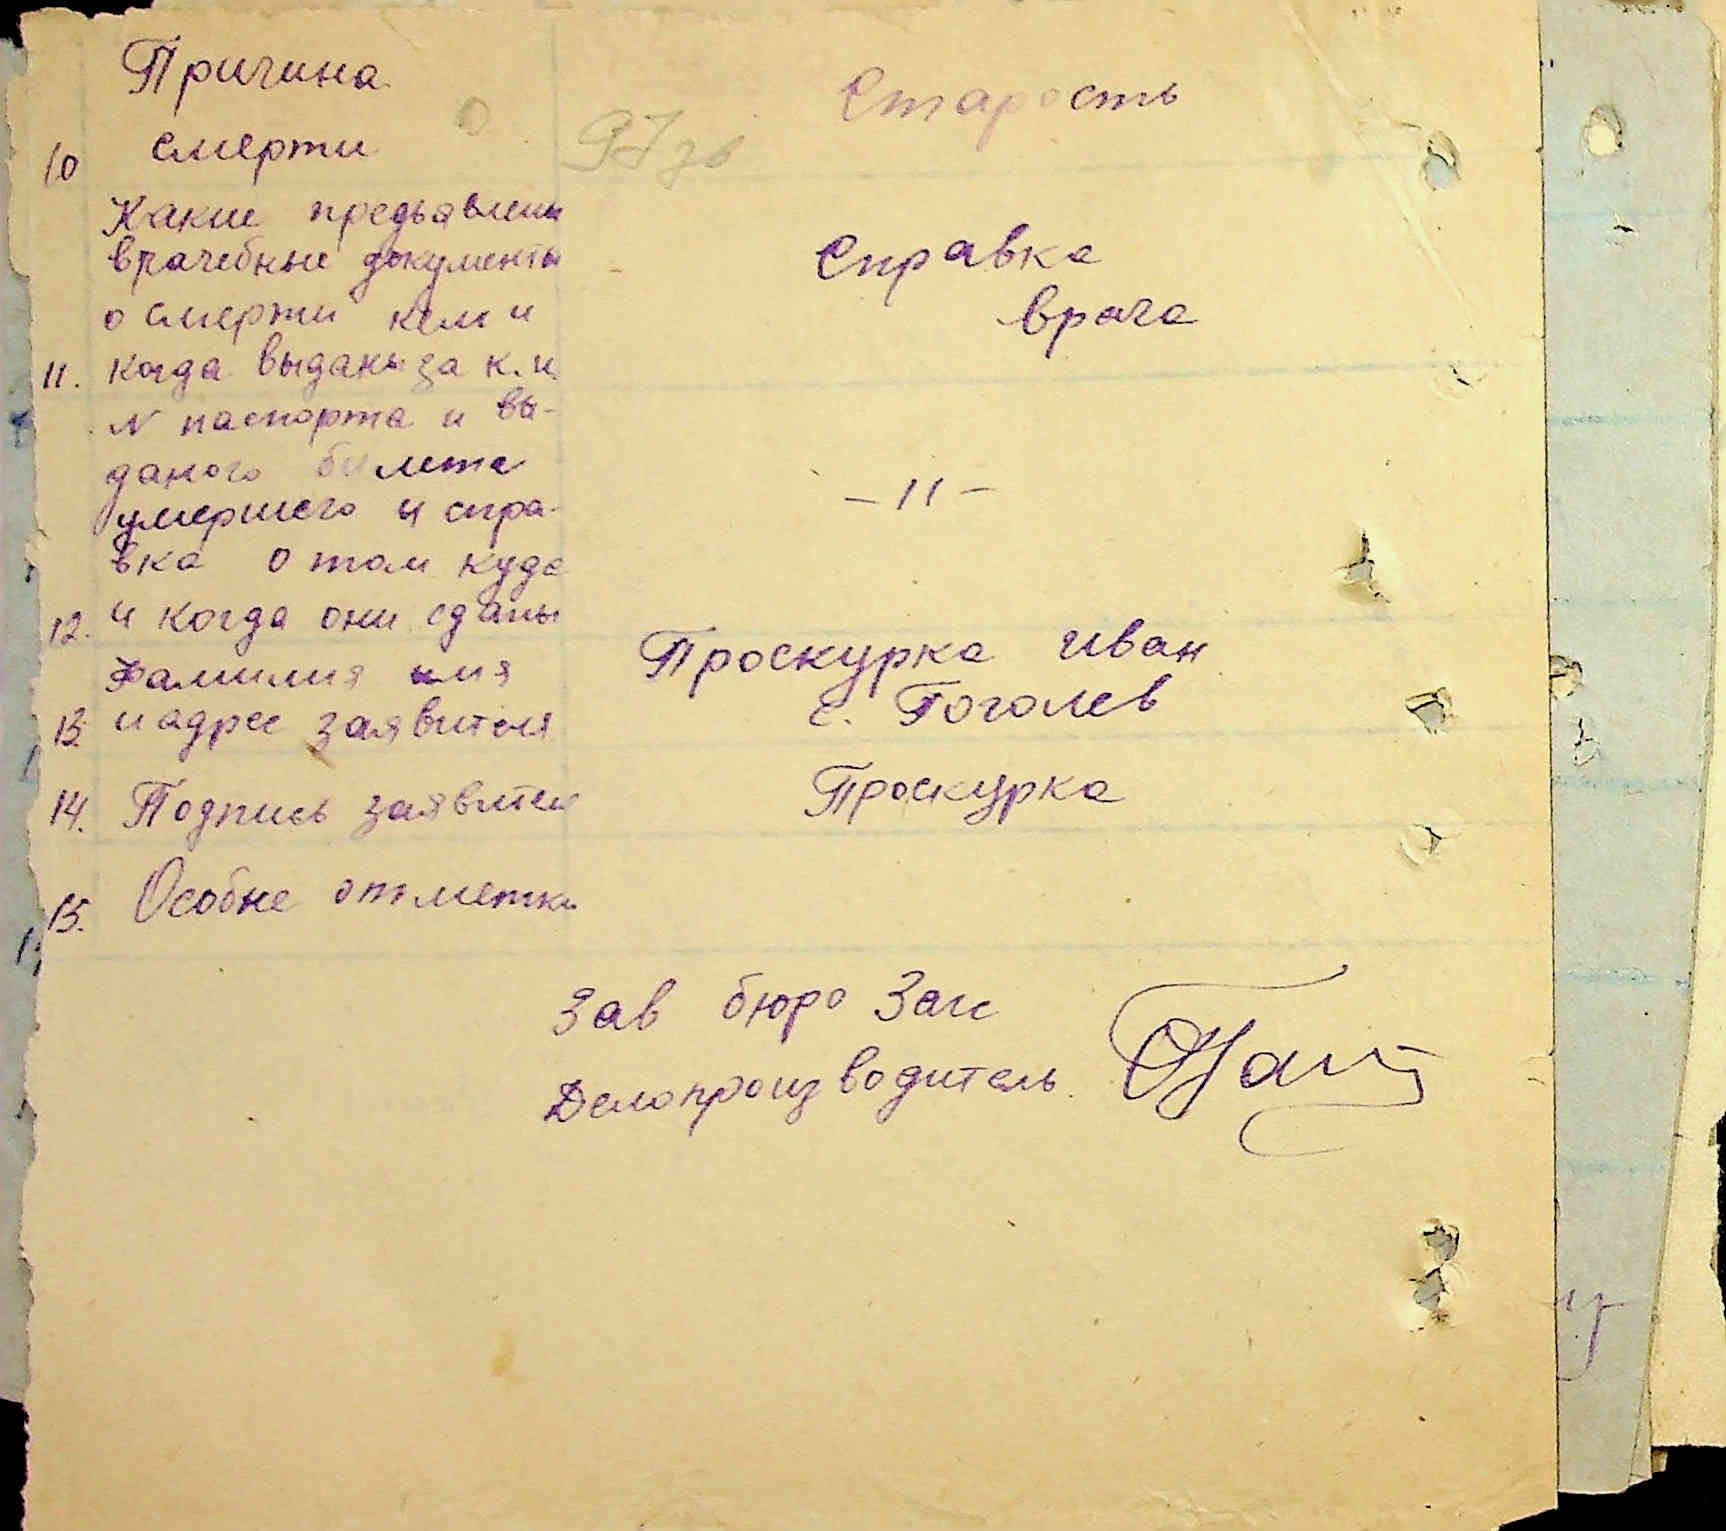 Причина
Старость
10 смерти
Какие предьявлены
врачебные документы
Справка
о смерти кем и
врача
11. когда выданы за к. н.
N паспорта и вы-
даного билета
- 11 -
умершего и спра-
вка о том куда
12. и когда они сданы
Проскурка Иван
Фамилия имя
с. Гоголев
13. и адрес заявителя
Проскурка
14. Подпись заявител
15. Особые отметки
Зав бюро Загс
Делопроизводитель